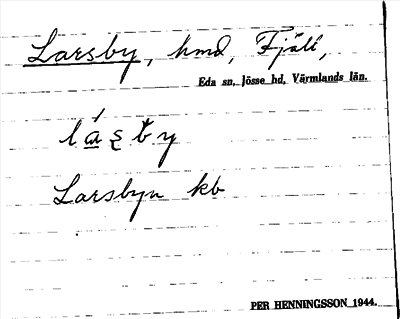 Larsby, hmd, Fjäll,
Eda sn, Jösse hd, Värmlands län.
Larsbyn kb
PER HENNINGSSON 1944.